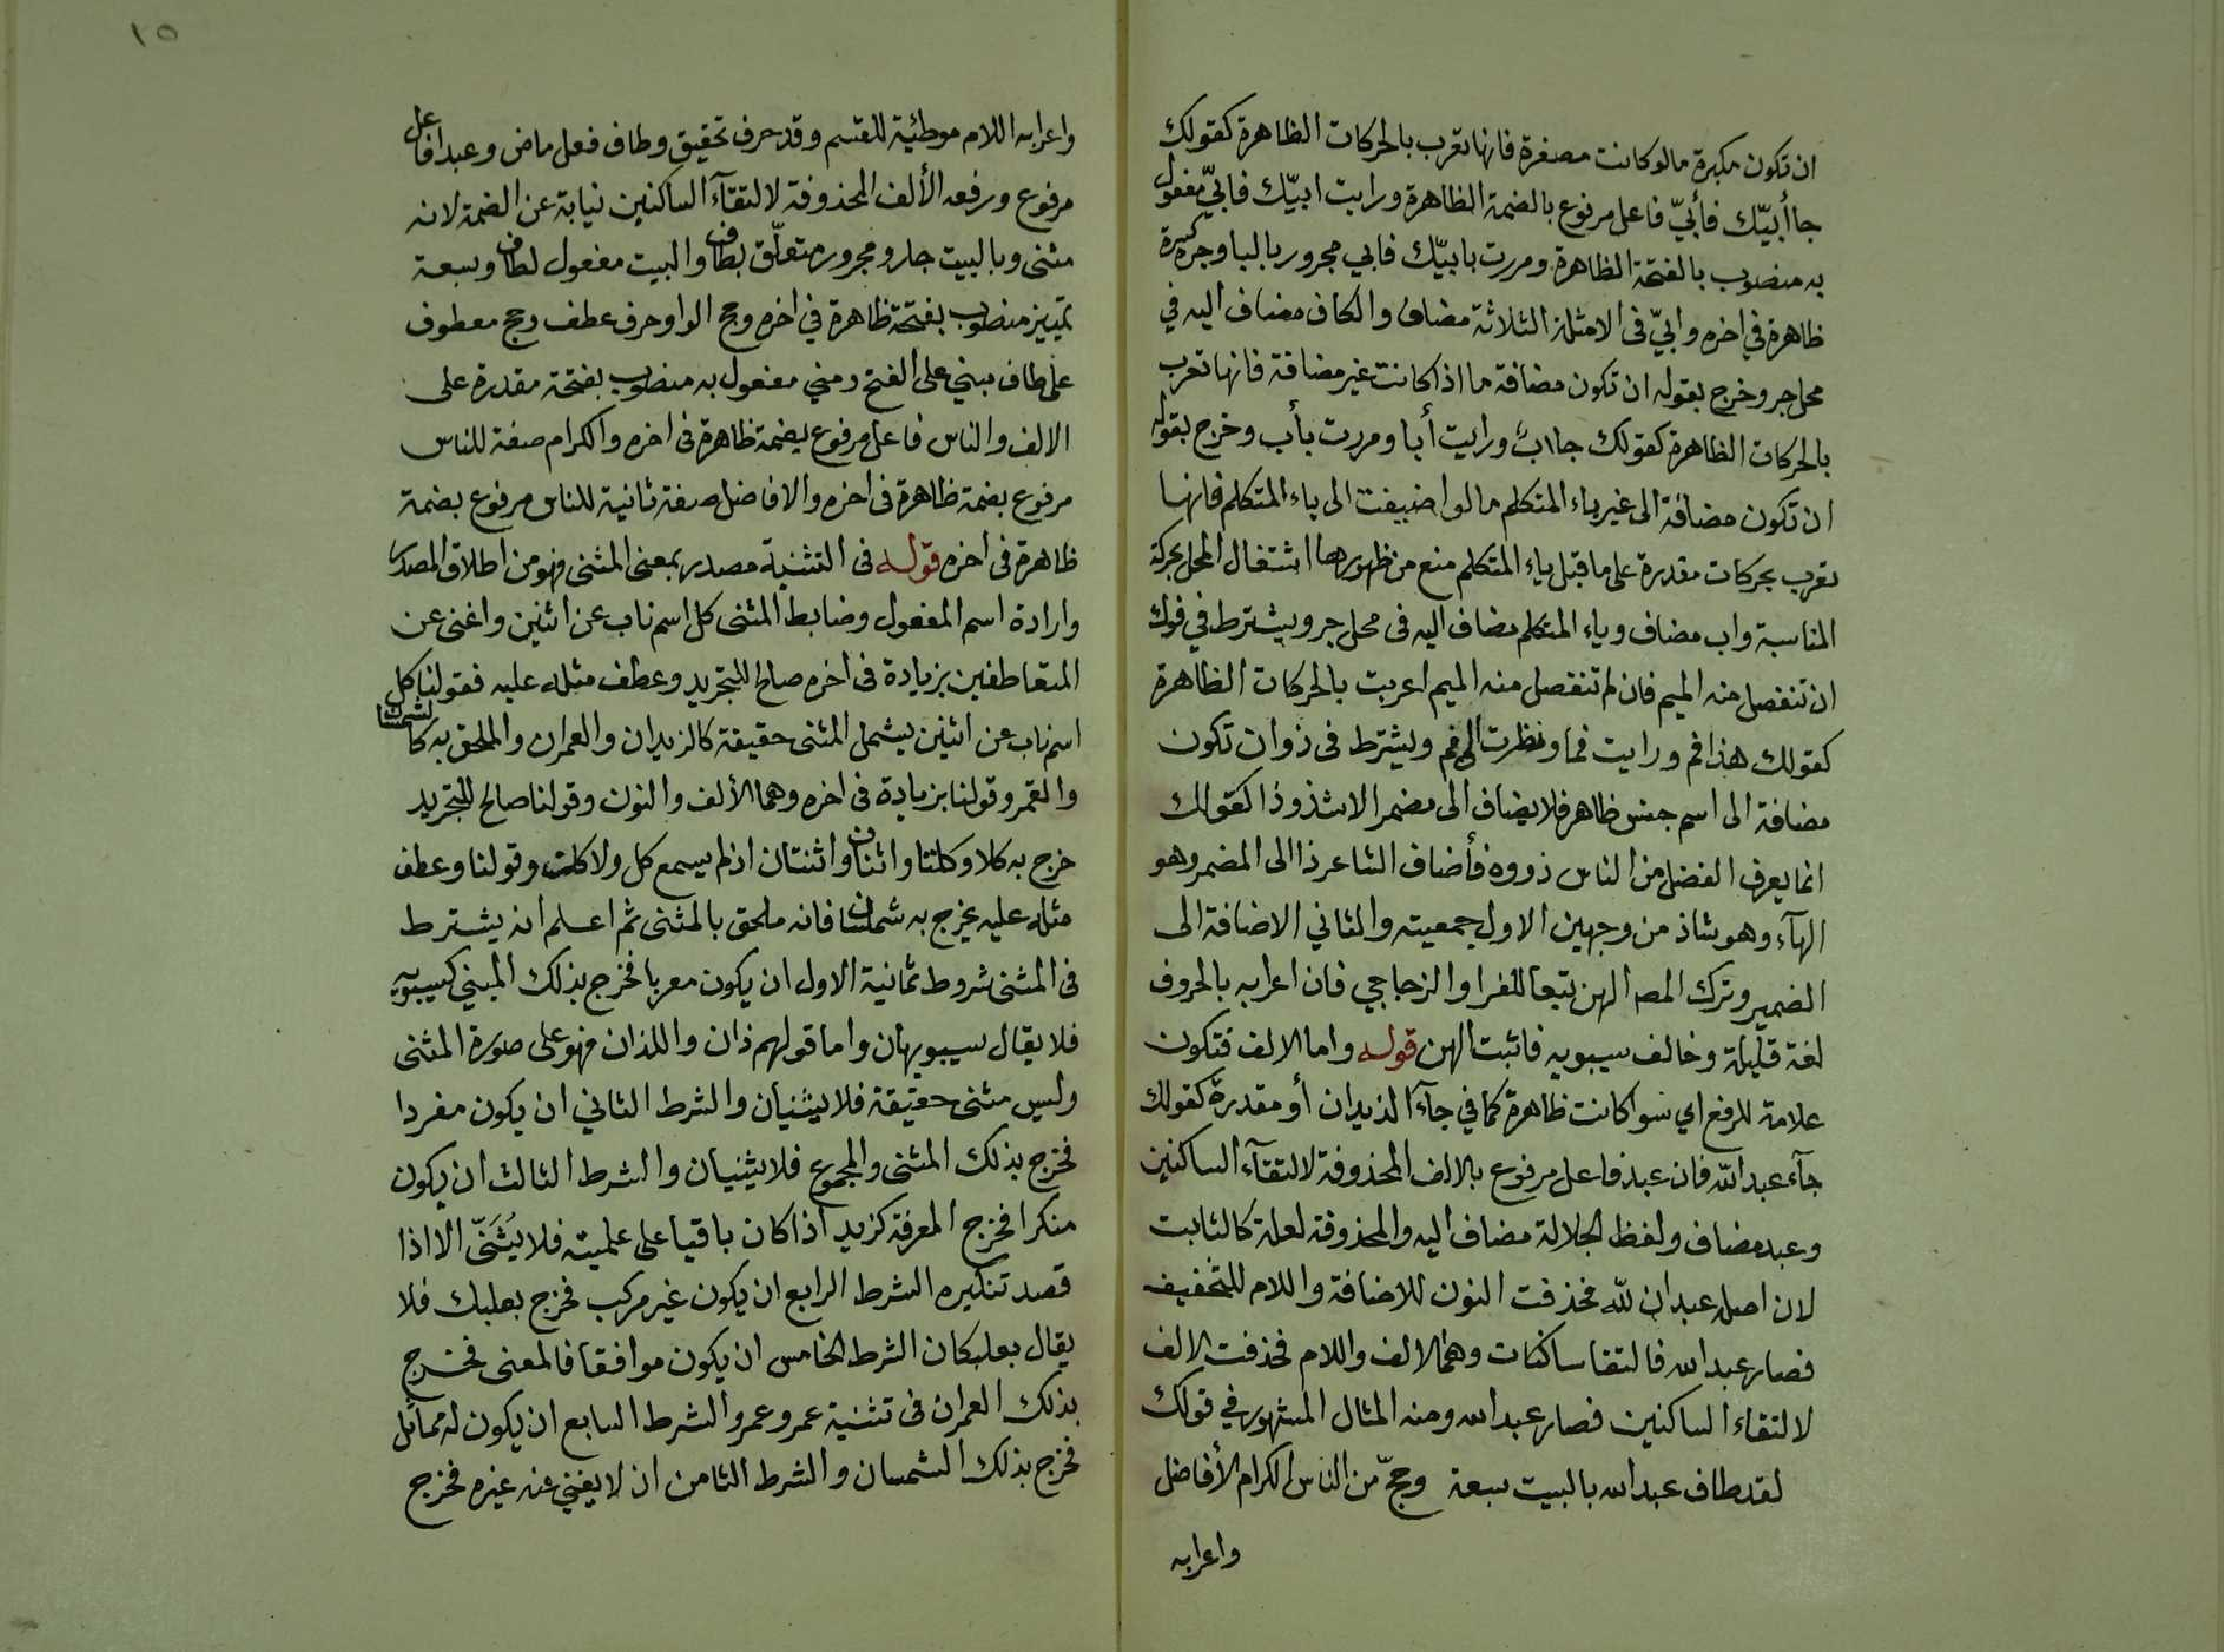 ان تكون مكبرة مالو كانت مصغرة فانها تعرب بالحركات الظاهرة كقولك
جا أبيّك فأبيّ فاعل مرفوع بالضمة الظاهرة ورايت ابيّك فابيّ مفعول
به منصوب بالفتحة الظاهرة ومررت بابيّك فابي مجرور بالبا وجره كسرة
ظاهرة في اخره وابيّ فى الامثلة الثلاثة مضاف والكاف مضاف اليه في
محل جر وخرج بقوله ان تكون مضافة ما اذا كانت غير مضافة فانها تعرب
بالحركات الظاهرة كقولك جا ابٌ ورايت أبا ومررت بأب وخرج بقوله
ان تكون مضافة الى غير ياء المتكلم مالو اضيفت الى ياء المتكلم فانها
تعرب بحركات مقدرة على ما قبل ياء المتكلم منع من ظهورها اشتغال المحل بحركة
المناسبة واب مضاف وياء المتكلم مضاف اليه فى محل جر ويشترط في فوك
ان تنفصل منه الميم فان لم تنفصل منه الميم اعربت بالحركات الظاهرة
كقولك هذا فم ورايت فما ونظرت الى فم ويشترط فى ذو ان تكون
مضافة الى اسم جنس ظاهر فلا يضاف الى مضمر الا شذوذا كقولك
انما يعرف الفضل من الناس ذووه فأضاف الشاعر ذا الى المضمر وهو
الهآء وهو شاذ من وجهين الاول جمعيته والثاني الاضافة الى
الضمير وترك المص الهن تبعا للفرا والزجاجي فان اعرابه بالحروف
لغة قليلة وخالف سيبويه فاثبت الهن قوله واما الالف فتكون
علامة للرفع اي سوا كانت ظاهرة كما في جآء الزيدان أو مقدرة كقولك
جآء عبد اللّه فان عبد فاعل مرفوع بالالف المحذوفة لالتقآء الساكنين
وعبد مضاف ولفظ الجلالة مضاف اليه والمحذوفة لعلة كالثابت
لان اصله عبدان للّه فحذفت النون للاضافة واللام للتخفيف
فصار عبدا الله فالتقا ساكنات وهما الالف واللام فحذفت الالف
لالتقاء الساكنين فصار عبد الله ومنه المثال المشهور في قولك
لقد طاف عبد الله بالبيت سبعة وحجّ من الناس الكرام الأفاضل
واعرابه
١٥
واعرابه اللام موطئية للقسم وقد حرف تحقيق وطاف فعل ماض وعبدا فاعل
مرفوع ورفعه الألف المحذوفة لالتقآء الساكنين نيابة عن الضمة لانه
مثنى وبالبيت جار ومجرور متعلّق بطاف والبيت مفعول لطاف وسبعة
تمييز منصوب بفتحة ظاهرة في اخره وحج الواو حرف عطف وحج معطوف
على طاف مبني على الفتح ومني مفعول به منصوب بفتحة مقدرة على
الالف والناس فاعل مرفوع بضمة ظاهرة فى اخره والكرام صفة للناس
مرفوع بضمة ظاهرة فى اخره والافاضل صفة ثانية للناس مرفوع بضمة
ظاهرة فى اخره قوله فى التثنية مصدر بمعنى المثنى فهو من اطلاق المصدر
وارادة اسم المفعول وضابط المثنى كل اسم ناب عن اثنين واغنى عن
المتعاطفين بزيادة فى اخره صالح للتجريد وعطف مثله عليه فقولنا كل
اسم ناب عن اثنين يشمل المثنى حقيقة كالزيدان والعمران والملحق به كالشمسان
والقمر وقولنا بزيادة فى اخره وهما الألف والنون وقولنا صالح للتجريد
خرج به كلا وكلتا واثنان واثنتان اذ لم يسمع كل ولا كلت وقولنا وعطف
مثله عليه يخرج به شمسان فانه ملحق بالمثنى ثم اعلم انه يشترط
فى المثنى شروط ثمانية الاول ان يكون معربا فخرج بذلك المبني كسيبويه
فلا يقال سيبويهان واما قولهم ذان واللذان فهو على صورة المثنى
وليس مثنى حقيقة فلا يثنيان والشرط الثاني ان يكون مفردا
فخرج بذلك المثنى والمجموع فلا يثنيان والشرط الثالث ان يكون
منكرا فخرج المعرفة كزيد اذا كان باقيا على علميته فلا يُثَنّى الا اذا
قصد تنكيره الشرط الرابع ان يكون غير مركب فخرج بعلبك فلا
يقال بعلبكان الشرط الخامس ان يكون موافقا فالمعنى فخرج
بذلك العمران فى تثنية عمر وعمرو الشرط السابع ان يكون له مماثل
فخرج بذلك الشمسان والشرط الثامن ان لا يغني عنه غيره فخرج